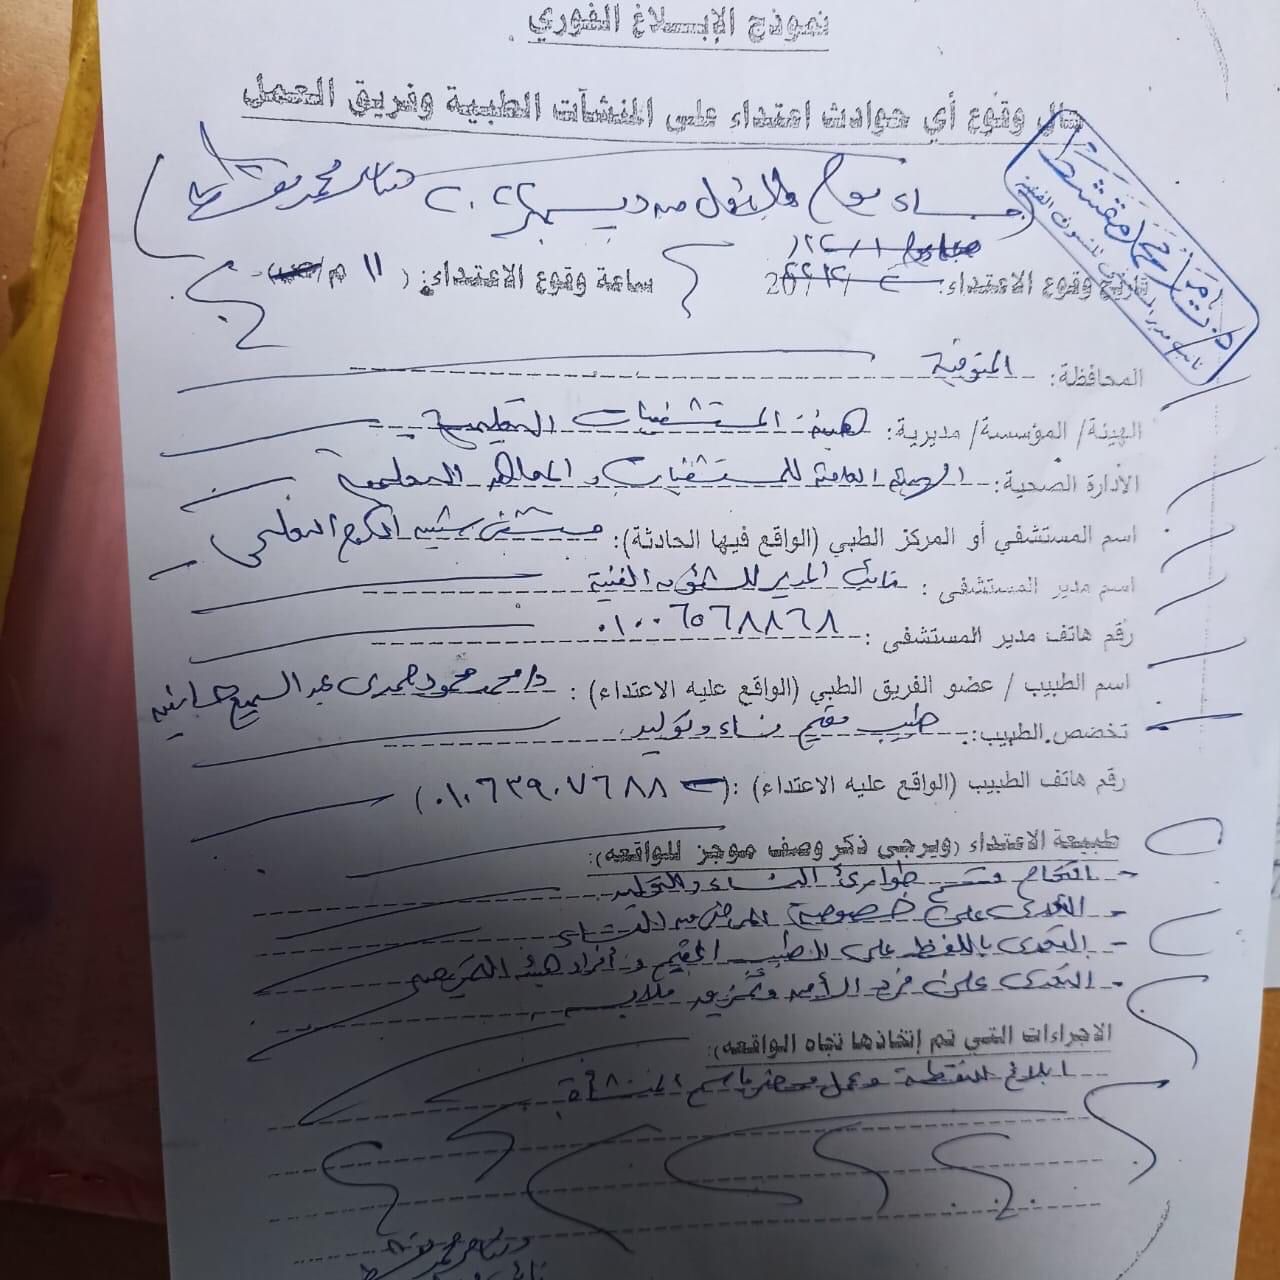 نموذج الإبلاغ الفوري
حال وقوع أي حوادث اعتداء على المنشآت الطبية وفريق العمل
مساء يوم الأول من ديسمبر
تاريخ وقوع الاعتداء: ساعة وقوع الاعتداء: ( ١١ م/
المحافظة: المنوفية
الهيئة/ المؤسسة/ مديرية: هيئة المستشفيات التعليمية
الادارة الصحية: الهيئة العامة للمستشفيات و المعاهد التعليمية
اسم المستشفي أو المركز الطبي (الواقع فيها الحادثة): مستشفى شبين الكوم التعليمي
اسم مدير المستشفى : نائب المدير للشئون الفنية
رقم هاتف مدير المستشفى : ٠١٠٠٦٥٦٨٨٦٨
اسم الطبيب / عضو الفريق الطبي (الواقع عليه الاعتداء) : د/ محمد محمود حمدى عبد السميع
تخصص الطبيب: طبيب مقيم نساء وتوليد
رقم هاتف الطبيب (الواقع عليه الاعتداء) : (٠١٠٦٣٩٠٧٦٨٨)
طبيعة الاعتداء (ويرجى ذكر وصف موجز للواقعه):
- اقتحام قسم طوارئ النساء والتوليد
- التعدى على خصوصية المرضى من النساء
- التعدى باللفظ على الطبيب المقيم و أفراد هيئة التمريض
- التعدى على فرد الأمن وتمزيق ملابسه
الاجراءات التي تم إتخاذها تجاه الواقعه:
ابلاغ النقطة وعمل محضر باسم المنشأة